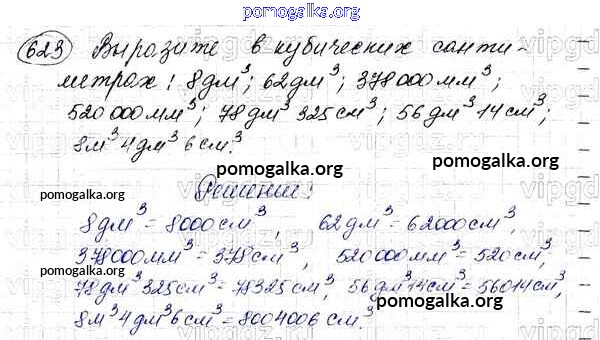 pomogalka.org
623 Выразите в кубических санти-
метрах: 8дм³; 62дм³; 378000мм³;
520000мм³; 78дм³ 325см³; 56дм³ 14см³;
8м³ 4дм³ 6см³.
pomogalka.org
pomogalka.org
Решение:
8дм³ = 8000см³, 62дм³ = 62000см³,
378000мм³ = 378см³, 520000мм³ = 520см³,
pomogalka.org
pomogalka.org
78дм³ 325см³ = 78325см³, 56дм³ 14см³ = 56014см³,
pomogalka.org
8м³ 4дм³ 6см³ = 8004006см³.